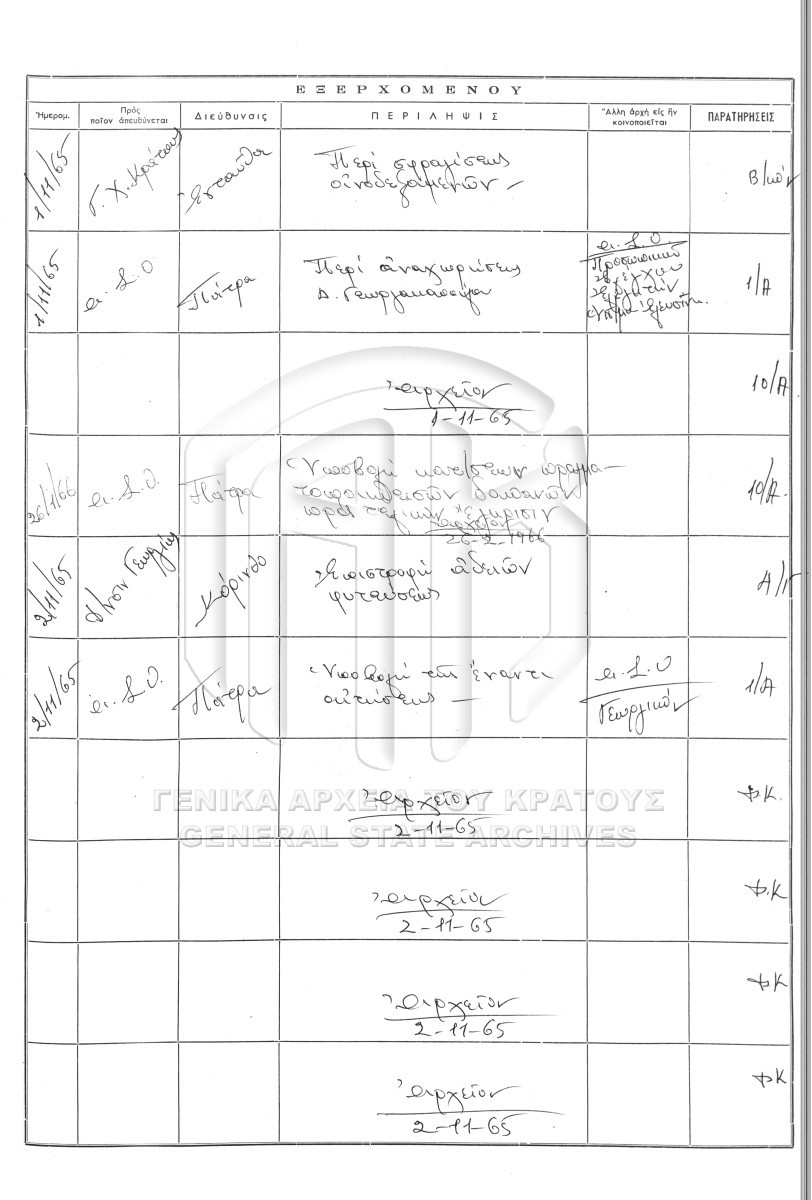 ΕΞΕΡΧΟΜΕΝΟΥ
Ἡμερομ.
Πρὸς ποῖον ἀπευθύνεται
Διεύθυνσις
ΠΕΡΙΛΗΨΙΣ
Ἄλλη ἀρχὴ εἰς ἣν κοινοποιεῖται
ΠΑΡΑΤΗΡΗΣΕΙΣ
1/11/65
Γ. Χ. Κράτους
Ἐνταῦθα
Περὶ σφραγίσεως
οἰνοδεξαμενῶν –
1/11/65
Πάτρα
Περὶ ἀναχωρήσεως
Δ. Γεωργακόπουλου
Προσωπικοῦ
1/Α
Ἀρχεῖον
1-11-65
10/Α
26/1/66
Πάτρα
Ὑποβολὴ κατ/σεων πραγμα–
τοποιηθεισῶν δαπανῶν
Ἀρχεῖον
26-2-1966
10/Α.
2/11/65
Δ/νσιν Γεωργίας
Κόρινθο
Ἐπιστροφὴ ἀδειῶν
φυτεύσεως
2/11/65
Πάτρα
Ὑποβολὴ τῆς ἔναντι
αἰτήσεως –
Γεωργικόν
1/Α
Ἀρχεῖον
2-11-65
Φ.Κ.
Ἀρχεῖον
2-11-65
Φ.Κ
Ἀρχεῖον
2-11-65
ΦΚ
Ἀρχεῖον
2-11-65
ΦΚ
ΓΕΝΙΚΑ ΑΡΧΕΙΑ ΤΟΥ ΚΡΑΤΟΥΣ
GENERAL STATE ARCHIVES